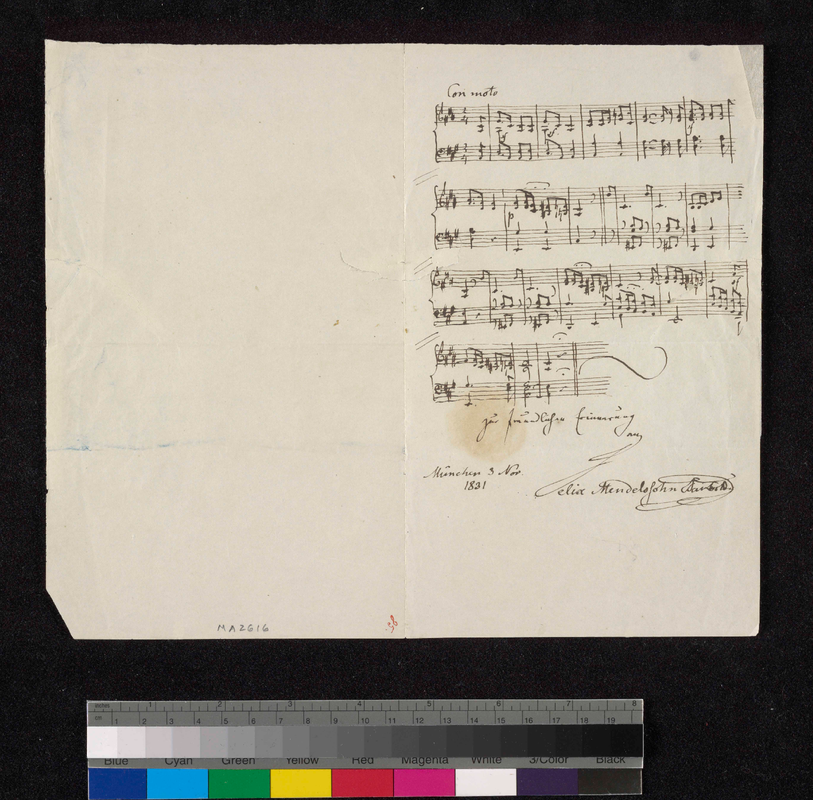 Con moto
p
zur freundlichen Erinnerung
an
München 3 Nov.
1831
Felix Mendelssohn Bartholdy
MA2616
inches 1 2 3 4 5 6 7 8
cm 1 2 3 4 5 6 7 8 9 10 11 12 13 14 15 16 17 18 19
Blue Cyan Green Yellow Red Magenta White 3/Color Black